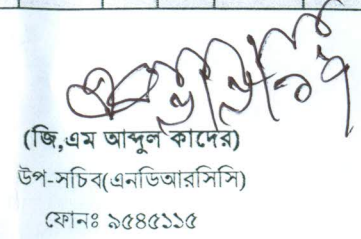 (জি,এম আব্দুল কাদের)
উপ-সচিব(এনডিআরসিসি)
ফোনঃ ৯৫৪৫১১৫